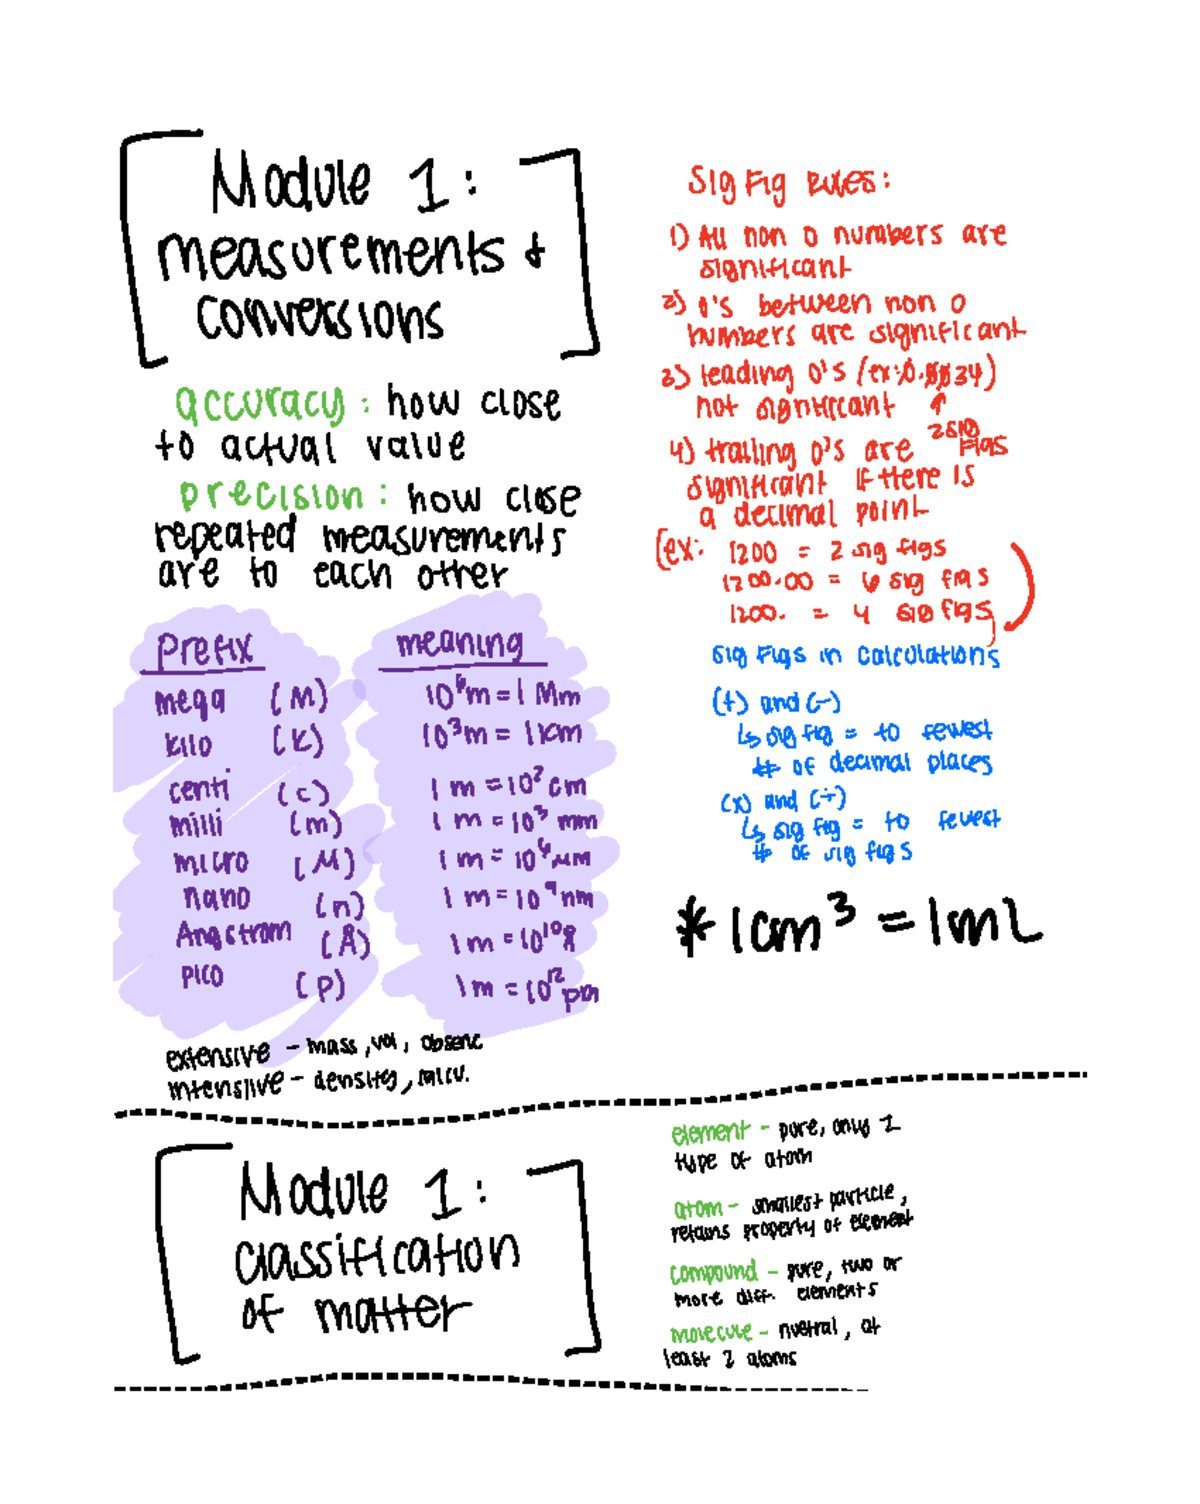 Module 1:
measurements +
conversions
accuracy: how close
to actual value
precision: how close
repeated measurements
are to each other
Prefix meaning
mega (M) 10⁶m = 1 Mm
kilo (k) 10³m = 1km
centi (c) 1 m = 10² cm
milli (m) 1 m = 10³ mm
micro (M) 1 m = 10⁶ μm
nano (n) 1 m = 10⁹ nm
Angstrom (Å) 1 m = 10¹⁰ Å
pico (p) 1 m = 10¹² pm
extensive - mass, vol,
intensive - density,
Sig Fig Rules:
1) All non 0 numbers are
significant
2) 0's between non 0
numbers are significant
3) leading 0's (ex: 0.0034)
not significant ↑
2 sig
figs
4) trailing 0's are
significant if there is
a decimal point
(ex: 1200 = 2 sig figs
1200.00 = 6 sig figs
1200. = 4 sig figs)
Sig Figs in Calculations
(+) and (-)
↳ sig fig = to fewest
# of decimal places
(x) and (÷)
↳ sig fig = to fewest
# of sig figs
* 1cm³ = 1mL
Module 1:
classification
of matter
element - pure, only 1
type of atom
atom - smallest particle,
retains property of element
compound - pure, two or
more diff. elements
molecule - nuetral, at
least 2 atoms